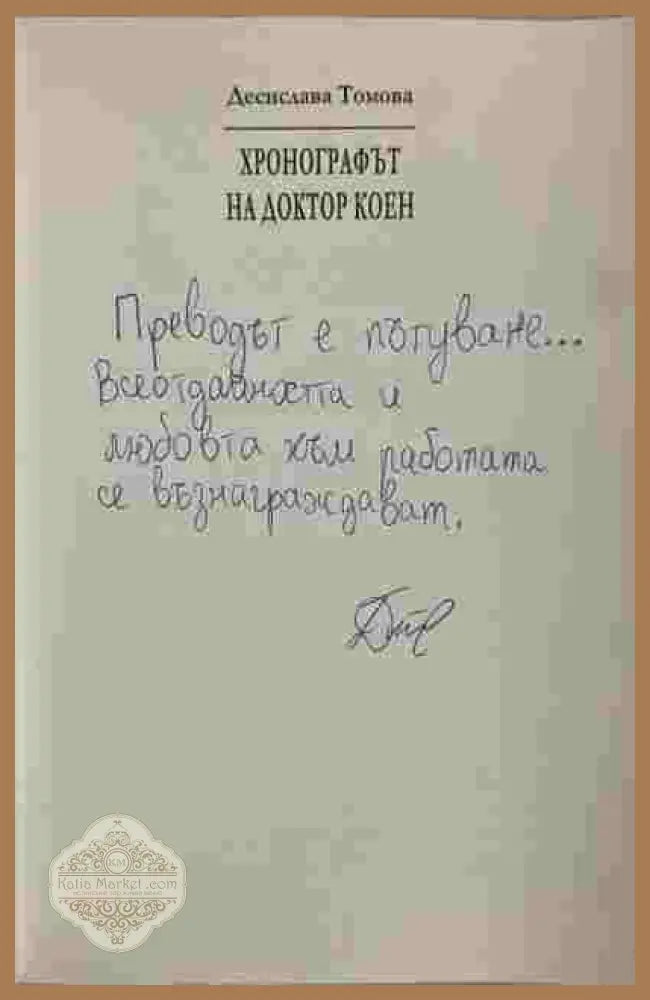 Десислава Томова
ХРОНОГРАФЪТ
НА ДОКТОР КОЕН
Преводът е пътуване...
Всеотдайността и
любовта към работата
се възнаграждават.
KM
Katia Market.com